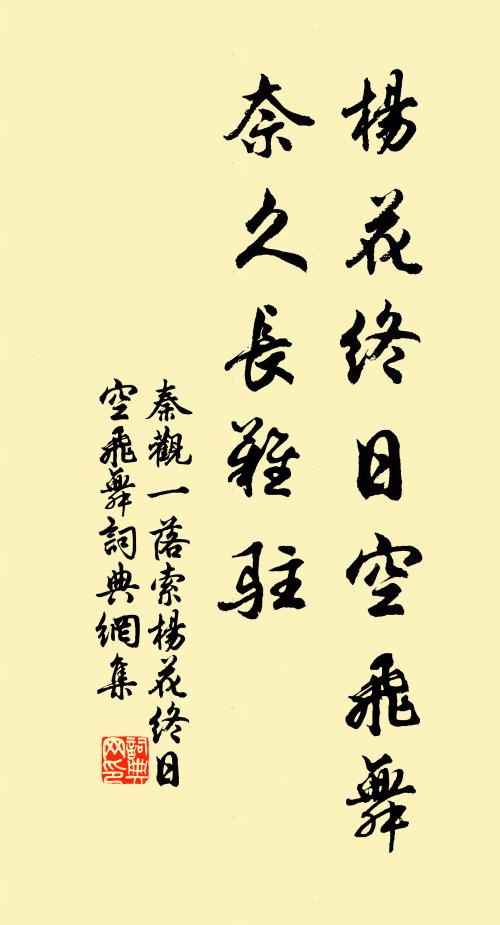 楊花終日空飛舞
奈久長難駐
秦觀一落索楊花終日
空飛舞詞典網集
詞典
网印